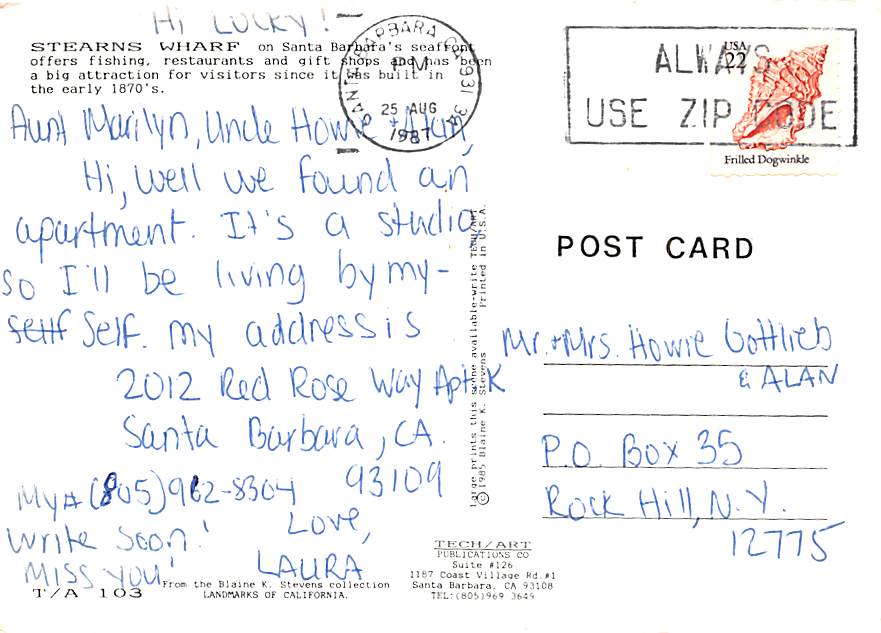 Hi LUCKY!
STEARNS WHARF on Santa Barbara's seafront
offers fishing, restaurants and gift shops and has been
a big attraction for visitors since it was built in
the early 1870's.
Aunt Marilyn, Uncle Howie + Alan,
Hi, Well we found an
apartment. It's a studio
so I'll be living by my-
self. My address is
2012 Red Rose Way Apt K
Santa Barbara, CA.
93109
My # (805)962-8304
Love,
Write soon!
LAURA
MISS YOU!
T/A 103
From the Blaine K. Stevens collection
LANDMARKS OF CALIFORNIA.
Large prints this scene available-write TECH/ART
©1985 Blaine K. Stevens Printed in U.S.A.
TECH/ART
PUBLICATIONS CO
Suite #126
1187 Coast Village Rd.#1
Santa Barbara, CA 93108
TEL:(805)969 3649
SANTA BARBARA CA 931
PM
25 AUG
1987
ALWAYS
USE ZIP CODE
USA
22
Frilled Dogwinkle
POST CARD
Mr. + Mrs. Howie Gottlieb
& ALAN
P.O. Box 35
Rock Hill, N.Y.
12775